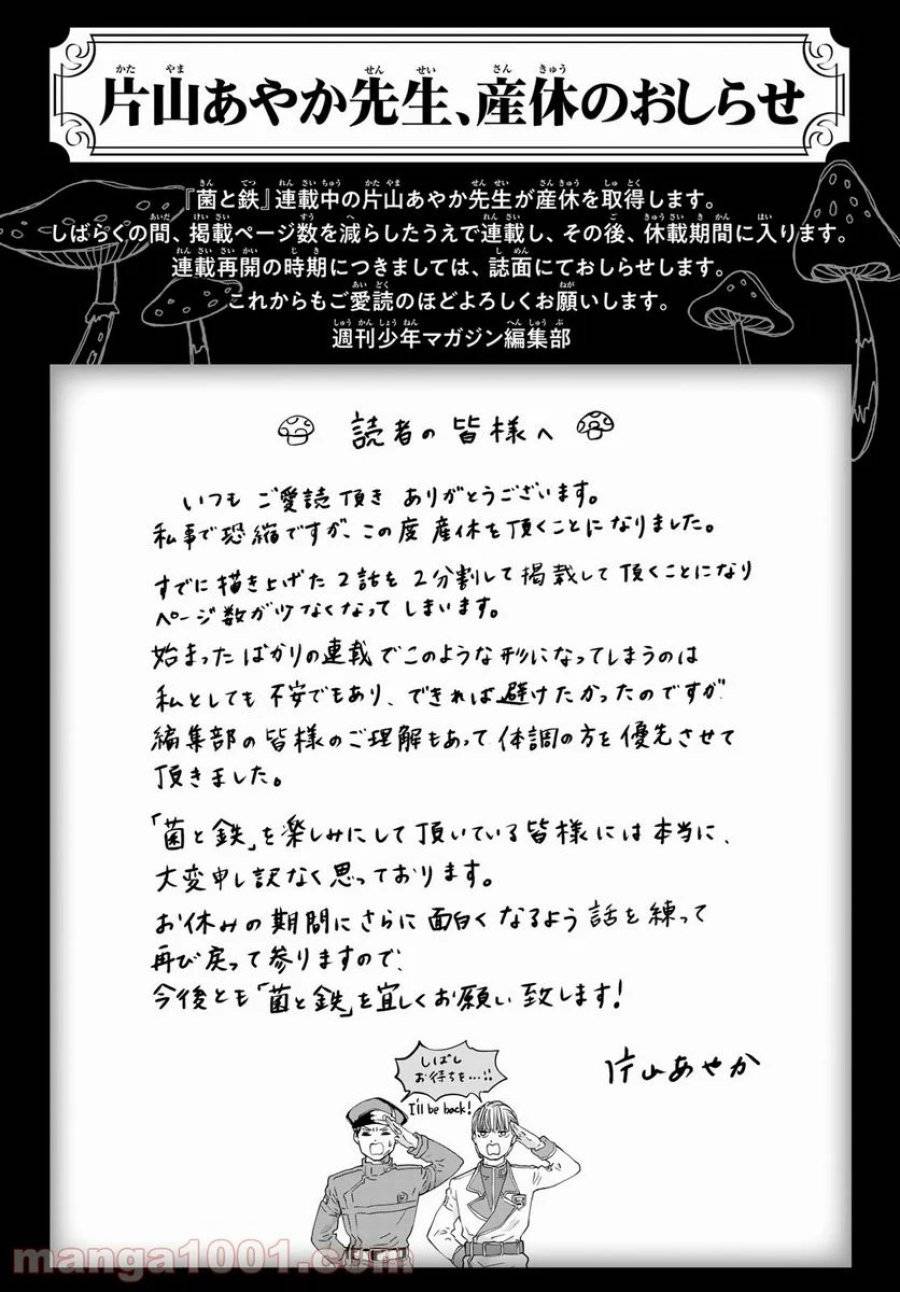 片山あやか先生、産休のおしらせ
『菌と鉄』連載中の片山あやか先生が産休を取得します。
しばらくの間、掲載ページ数を減らしたうえで連載し、その後、休載期間に入ります。
連載再開の時期につきましては、誌面にておしらせします。
これからもご愛読のほどよろしくお願いします。
週刊少年マガジン編集部
読者の皆様へ
いつも ご愛読頂き ありがとうございます。
私事で恐縮ですが、この度 産休を頂くことになりました。
すでに描き上げた2話を 2分割して掲載して頂くことになり
ページ数が少なくなってしまいます。
始まったばかりの連載でこのような形になってしまうのは
私としても不安でもあり、できれば避けたかったのですが
編集部の皆様のご理解もあって体調の方を優先させて
頂きました。
「菌と鉄」を楽しみにして頂いている皆様には本当に、
大変申し訳なく思っております。
お休みの期間にさらに面白くなるよう話を練って
再び戻って参りますので、
今後とも「菌と鉄」を宜しくお願い致します!
片山あやか
しばし
お待ちを…!!
I'll be back!
manga1001.com